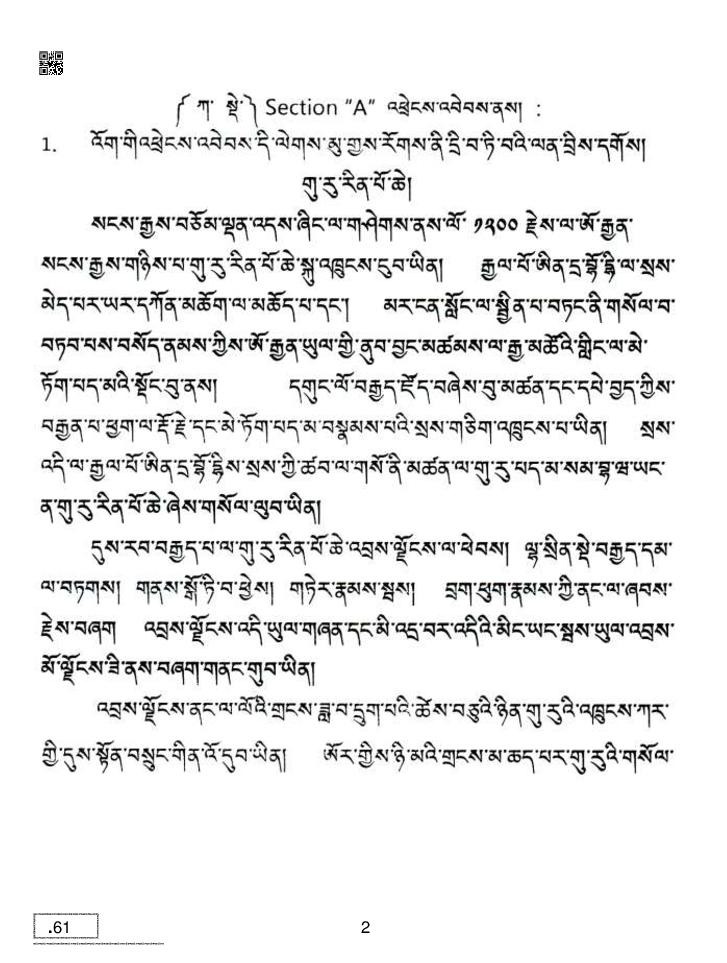 ༼ ཀ་ སྡེ་༽ Section "A" འཕྲེངས་འབེབས་ནས། :
1. འོག་གིའཕྲེངས་འབེབས་དི་ལེགས་མུ་གྱས་རོགས་ནི་དྲི་བ་ཏི་བའི་ལན་བྲིས་དགོས།
གུ་རུ་རིན་པོ་ཆེ།
སངས་རྒྱས་བཅོམ་ལྡན་འདས་ཞིང་ལ་གཤེགས་ནས་ལོ་ ༡༢༠༠ རྗེས་ལ་ཨོ་རྒྱན་
སངས་རྒྱས་གཉིས་པ་གུ་རུ་རིན་པོ་ཆེ་སྐུ་འཁྲུངས་དུབ་ཡིན། རྒྱལ་པོ་ཨིན་དྲ་བྷོ་དྷི་ལ་སྲས་
མེད་པར་ཡར་དཀོན་མཆོག་ལ་མཆོད་པ་དང་། མར་ངན་སློང་ལ་སྦྱིན་པ་བཏང་ནི་གསོལ་བ་
བཏབ་པས་བསོད་ནམས་ཀྱིས་ཨོ་རྒྱན་ཡུལ་གྱི་ནུབ་བྱང་མཚམས་ལ་རྒྱ་མཚོའི་གླིང་ལ་མེ་
ཏོག་པད་མའི་སྡོང་བུ་ནས། དགུང་ལོ་བརྒྱད་ཛོད་བཞེས་བུ་མཚན་དང་དཔེ་བྱད་ཀྱིས་
བརྒྱན་པ་ཕྱག་ལ་རྡོ་རྗེ་དང་མེ་ཏོག་པད་མ་བསྣམས་པའི་སྲས་གཅིག་འཁྲུངས་པ་ཡིན། སྲས་
འདི་ལ་རྒྱལ་པོ་ཨིན་དྲ་བྷོ་དྷིས་སྲས་ཀྱི་ཚབ་ལ་གསོ་ནི་མཚན་ལ་གུ་རུ་པད་མ་སམ་བྷ་ཝ་ཡང་
ན་གུ་རུ་རིན་པོ་ཆེ་ཞེས་གསོལ་ལུབ་ཡིན།
དུས་རབ་བརྒྱད་པ་ལ་གུ་རུ་རིན་པོ་ཆེ་འབྲས་ལྗོངས་ལ་ཕེབས། ལྷ་སྲིན་སྡེ་བརྒྱད་དམ་
ལ་བཏགས། གནས་སྒོ་ཏི་བ་ཕྱེས། གཏེར་རྣམས་སྦས། བྲག་ཕུག་རྣམས་ཀྱི་ནང་ལ་ཞབས་
རྗེས་བཞག འབྲས་ལྗོངས་འདི་ཡུལ་གཞན་དང་མི་འདྲ་བར་འདིའི་མིང་ཡང་སྦས་ཡུལ་འབྲས་
མོ་ལྗོངས་ཟི་ནས་བཞག་གནང་གུབ་ཡིན།
འབྲས་ལྗོངས་ནང་ལ་ལོའི་གྲངས་ཟླ་བ་དྲུག་པའི་ཚེས་བཅུའི་ཉིན་གུ་རུའི་འཁྲུངས་ཀར་
གྱི་དུས་སྟོན་བསྲུང་གིན་འོ་དུབ་ཡིན། ཨོར་གྱིས་ཉི་མའི་གྲངས་མ་ཆད་པར་གུ་རུའི་གསོལ་
.61
2